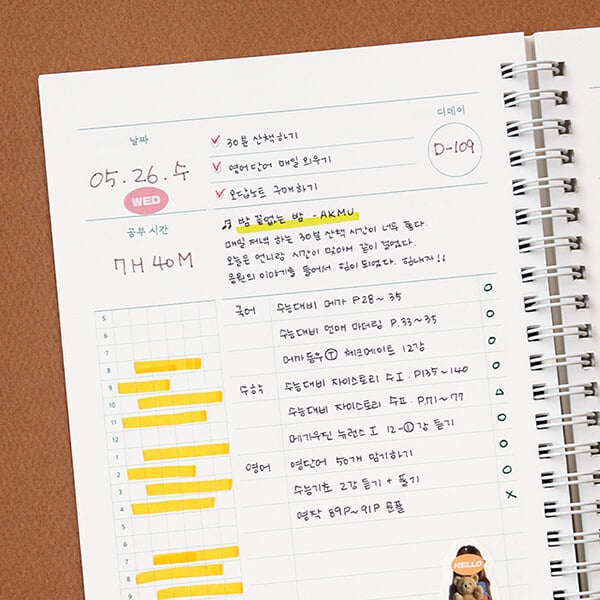 날짜
05.26.수
WED
공부 시간
7H 40M
30분 산책하기
영어단어 매일 외우기
오답노트 구매하기
디데이
D-109
밤 끝없는 밤 - AKMU
매일 저녁 하는 30분 산책 시간이 너무 좋다.
오늘은 언니랑 시간이 맞아서 같이 걸었다.
응원의 이야기를 들어서 힘이 되었다. 힘내자!!
국어 수능대비 메가 P28~35 O
수능대비 언매 마더텅 P.33~35 O
메가 Ⓣ 체크메이트 12강 O
수학 수능대비 자이스토리 수Ⅰ. P135~140 O
수능대비 자이스토리 수Ⅱ. P.71~77 △
메가 뉴런스Ⅰ 12-①강 듣기 O
영어 영단어 50개 암기하기 O
수능기초 2강 듣기 + 풀기 O
영작 89P~91P X
5
6
7
8
9
10
11
12
1
2
3
4
5
6
7
8
9
HELLO